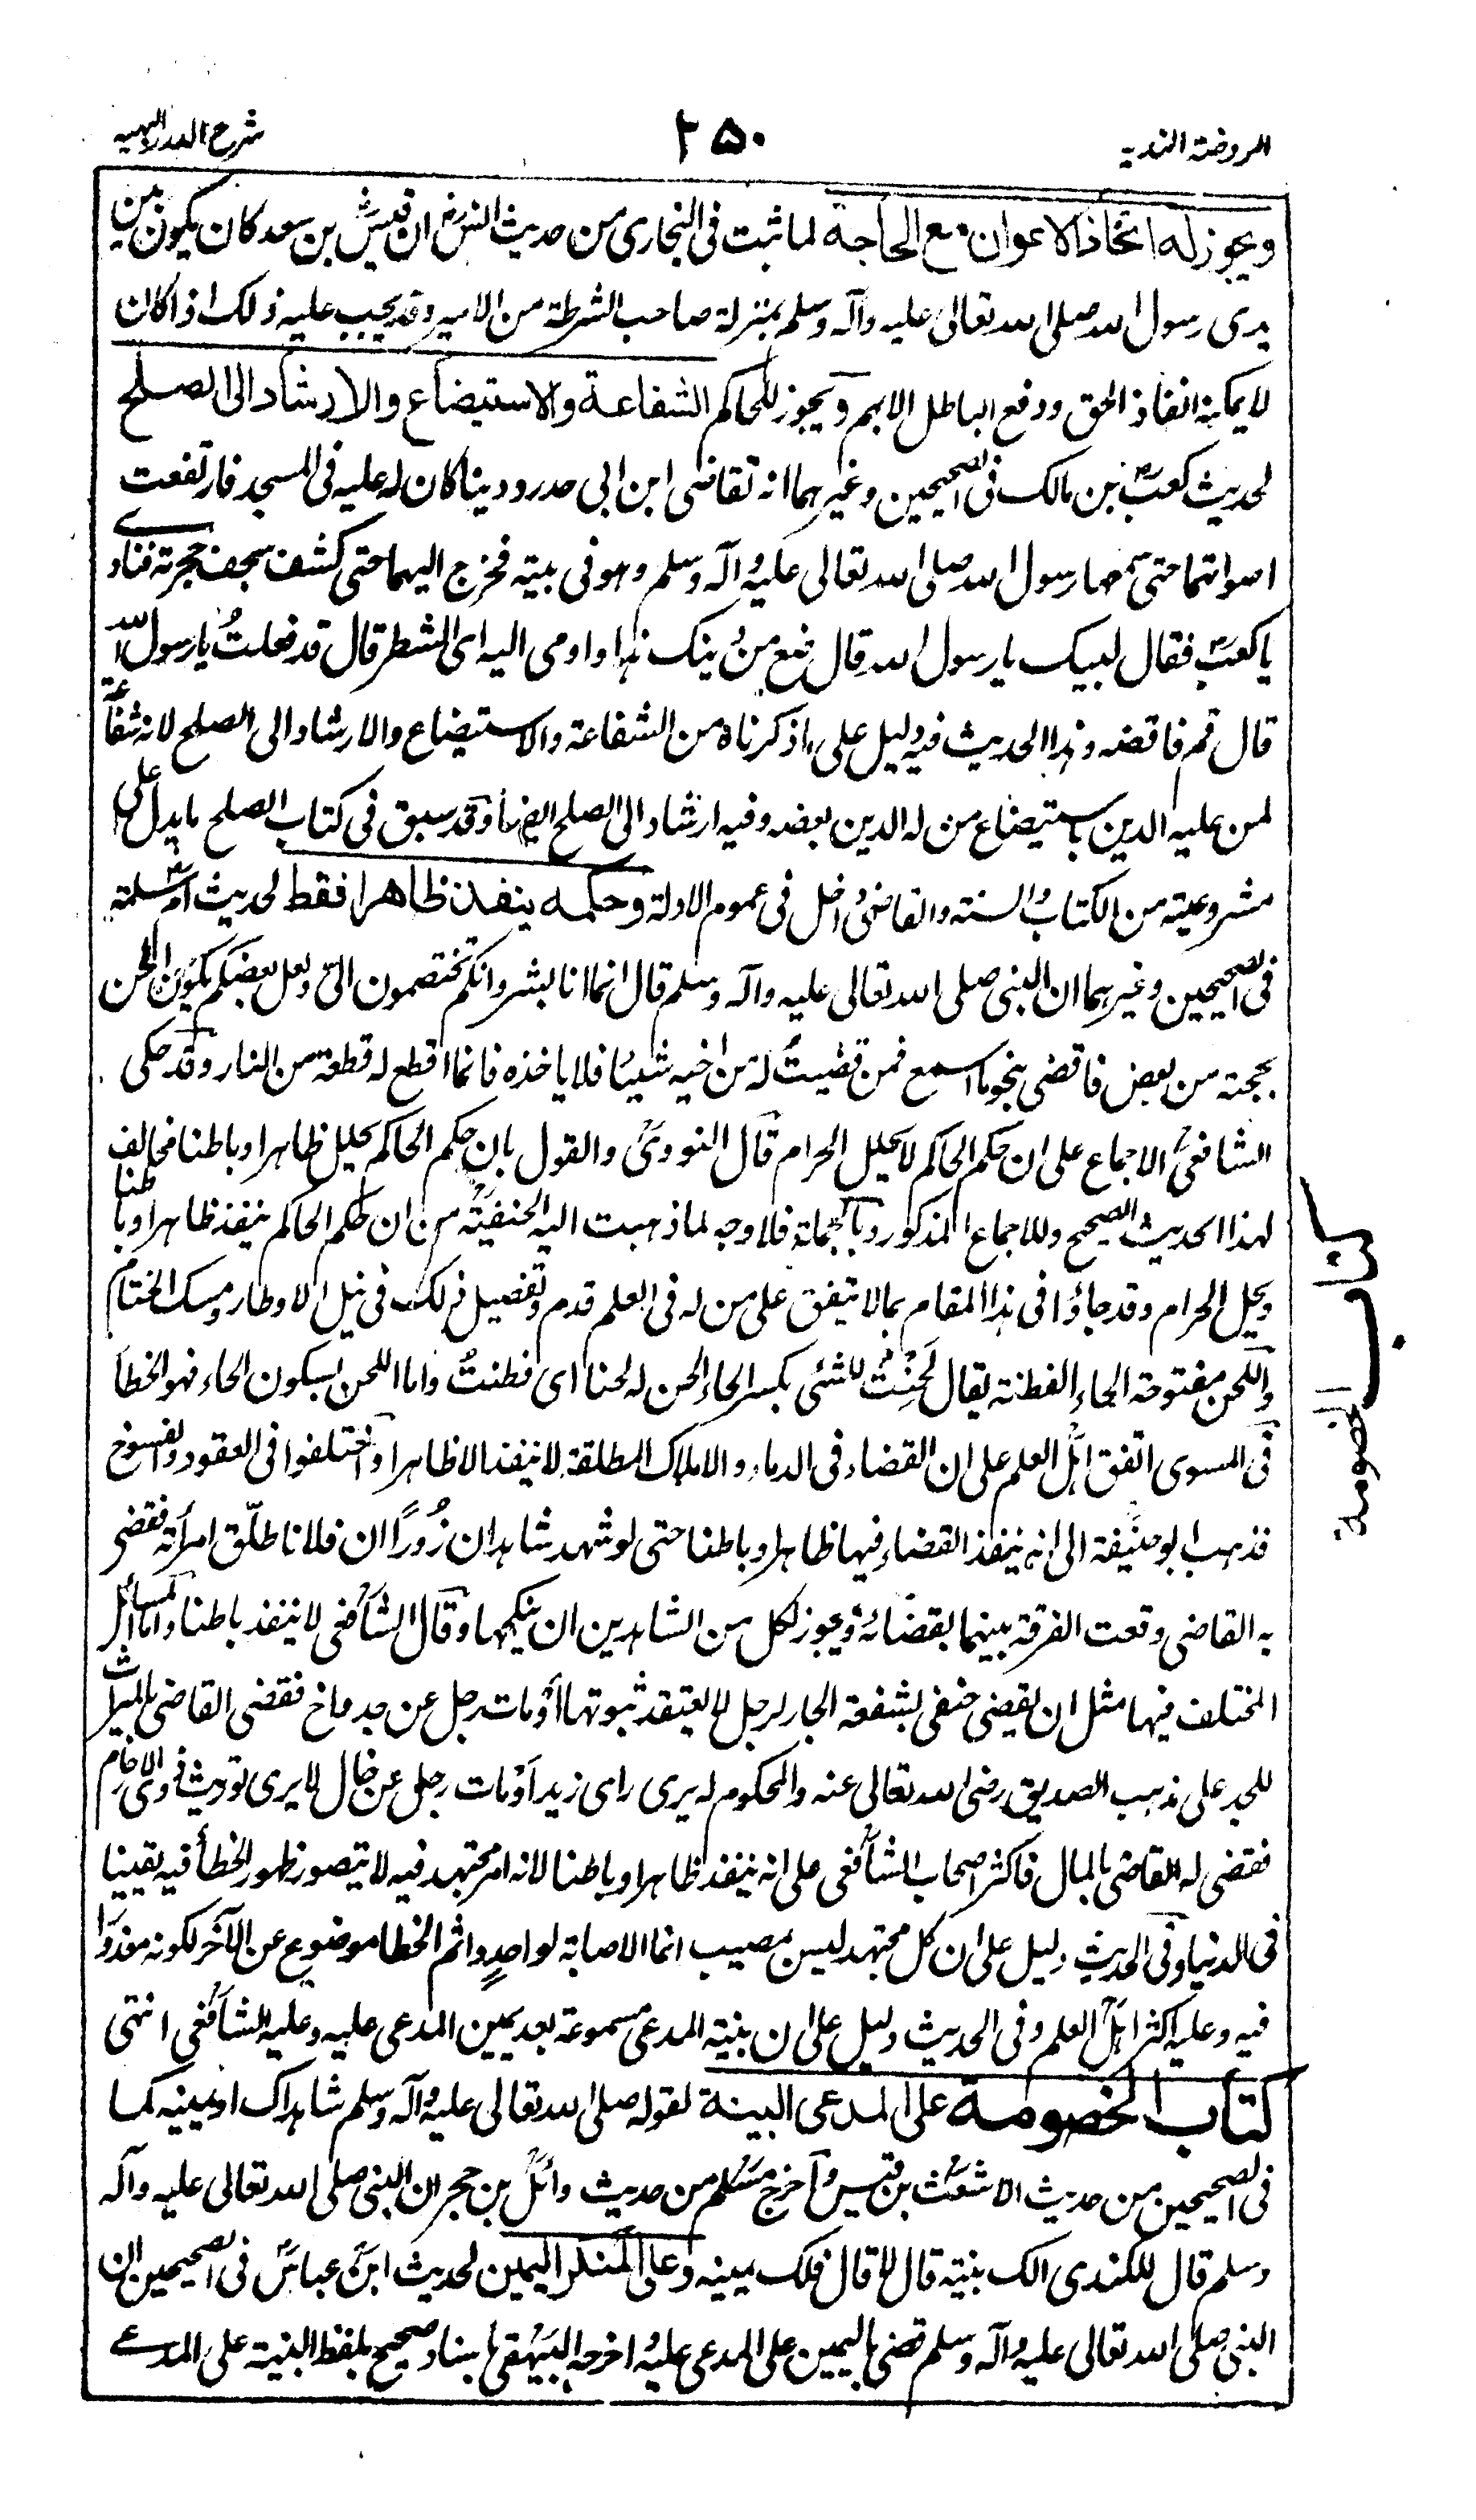 الروضة الندیہ
۲۵۰
شرح الدرر البہیہ
ویجوز لہ اتخاذ الاعوان مع الحاجة لما ثبت فی البخاری من حدیث انسؓ ان قیسؓ بن سعد کان یکون بین
یدی رسول اللہ صلی اللہ تعالی علیہ وآلہ وسلم بمنزلة صاحب الشرطة من الامیر وقد یجب علیہ ذلک اذا کان
لا یمکنہ انفاذ الحق ودفع الباطل الا بہم ویجوز للحاکم الشفاعة والاستیضاع والارشاد الی الصلح
لحدیث کعبؓ بن مالک فی الصحیحین وغیرہما انہ تقاضی ابن ابی حدرد دینا کان لہ علیہ فی المسجد فارتفعت
اصواتہما حتی سمعہا رسول اللہ صلی اللہ تعالی علیہ وآلہ وسلم وہو فی بیتہ فخرج الیہما حتی کشف سجف حجرتہ فنادی
یا کعبؓ فقال لبیک یا رسول اللہ قال ضع من دینک ہذا واومی الیہ ای الشطر قال قد فعلتُ یا رسول اللہ
قال قم فاقضہ وہذا الحدیث فیہ دلیل علی ما ذکرناہ من الشفاعة والاستیضاع والارشاد الی الصلح لانہ شفاعة
لمن علیہ الدین باستیضاع من لہ الدین بعضہ وفیہ ارشاد الی الصلح ایضا وقد سبق فی کتاب الصلح ما یدل علی
مشروعیتہ من الکتاب والسنة والقاضی داخل فی عموم الادلة وحکمہ ینفذ ظاھرا فقط لحدیث ام سلمةؓ
فی الصحیحین وغیرہما ان النبی صلی اللہ تعالی علیہ وآلہ وسلم قال انما انا بشر وانکم تختصمون الیّ ولعل بعضکم یکون الحن
بحجتہ من بعض فاقضی بنحو ما اسمع فمن قضیتُ لہ من اخیہ شیئا فلا یاخذہ فانما اقطع لہ قطعة من النار وقد حکی
الشافعیؒ الاجماع علی ان حکم الحاکم لا یحلل الحرام قال النوویؒ والقول بان حکم الحاکم یحلل ظاہرا وباطنا مخالف
لہذا الحدیث الصحیح وللاجماع المذکور وبالجملة فلا وجہ لما ذہبت الیہ الحنفیة من ان حکم الحاکم ینفذ ظاہرا وباطنا
ویحل الحرام وقد جاؤا فی ہذا المقام بما لا ینفق علی من لہ فی العلم قدم وتفصیل ذلک فی نیل الاوطار ومسک الختام
واللحن مفتوحة الحاء الفطنة یقال لَحِنْتُ للشئی بکسر الحاء الحن لہ لحنا ای فطنتُ واما اللحن بسکون الحاء فہو الخطأ
فی المسوی اتفق اہل العلم علی ان القضاء فی الدماء والاملاک المطلقة لا ینفذ الا ظاہرا واختلفوا فی العقود والفسوخ
فذہب ابو حنیفة الی انہ ینفذ القضاء فیہا ظاہرا وباطنا حتی لو شہد شاہدان زُورًا ان فلانا طلّق امرأتہ فقضی
بہ القاضی وقعت الفرقة بینہما بقضائہ ویجوز لکل من الشاہدین ان ینکحہا وقال الشافعی لا ینفذ باطنا واما المسائل
المختلف فیہا مثل ان یقضی حنفی بشفعة الجار لرجل لا یعتقد ثبوتہا او مات رجل عن جد واخ فقضی القاضی بالمیراث
للجد علی مذہب الصدیق رضی اللہ تعالی عنہ والمحکوم لہ یری رای زید او مات رجل عن خال لا یری توریث ذوی الارحام
فقضی لہ القاضی بالمال فاکثر اصحاب الشافعی علی انہ ینفذ ظاہرا وباطنا لانہ امر مجتہد فیہ لا یتصور ظہور الخطأ فیہ یقینا
فی الدنیا وفی الحدیث دلیل علی ان کل مجتہد لیس بمصیب انما الاصابة لواحدٍ واثم الخطا موضوع عن الآخر لکونہ معذورا
فیہ وعلیہ اکثر اہل العلم وفی الحدیث دلیل علی ان بینة المدعی مسموعة بعد یمین المدعی علیہ وعلیہ الشافعی انتہی
کتاب الخصومة علی المدعی البینة لقولہ صلی اللہ تعالی علیہ وآلہ وسلم شاہداک او یمینہ کما
فی الصحیحین من حدیث الاشعثؓ بن قیس واخرج مسلم من حدیث وائلؓ بن حجر ان النبی صلی اللہ تعالی علیہ وآلہ
وسلم قال للکندی الک بینة قال لا قال فلک یمینہ وعلی المنکر الیمین لحدیث ابن عباسؓ فی الصحیحین ان
النبی صلی اللہ تعالی علیہ وآلہ وسلم قضی بالیمین علی المدعی علیہ اخرجہ البیہقی باسناد صحیح بلفظ البینة علی المدعی
کتاب الخصومة